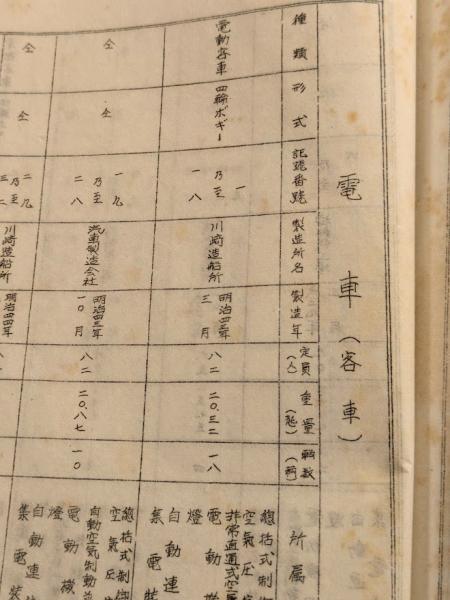 電車（客車）
種類
形式
記號番號
製造所名
製造年
定員（人）
重量（瓲）
輌数（輌）
所属
電動客車
四輪ボギー
一乃至一八
川崎造船所
明治四三年三月
八二
二〇.三二
一八
総括式制
空氣圧
非常直通式空
電動
電燈
自動連
集電装
仝
仝
一九乃至二八
汽車製造会社
明治四三年一〇月
八二
二〇.八七
一〇
総括式制御
空氣圧
自動空氣制動
電動機
電燈
自動連
集電装
仝
仝
二九乃至三二
川崎造船所
明治四四年